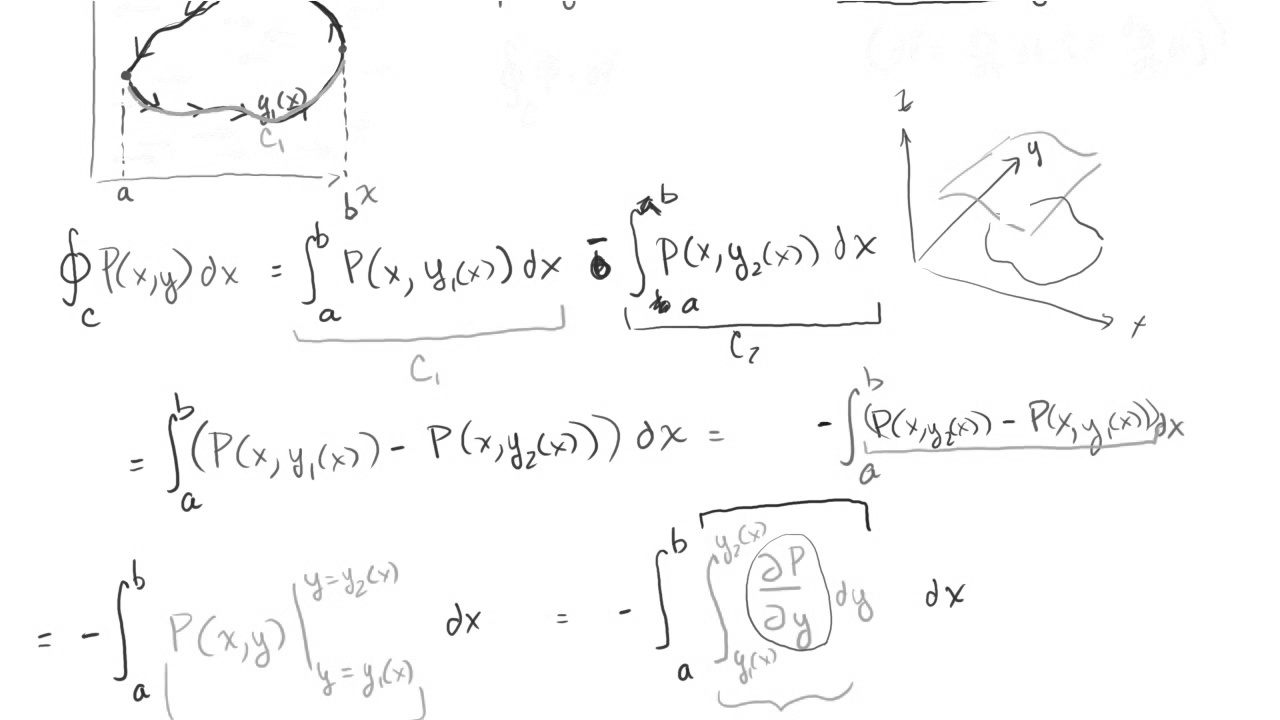 y₁(x)
C₁
a
b x
z
y
x
∮_C P(x,y) dx = ∫_a^b P(x, y₁(x)) dx - ∫_a^b P(x, y₂(x)) dx
C₁ C₂
= ∫_a^b (P(x, y₁(x)) - P(x, y₂(x))) dx = -∫_a^b (P(x, y₂(x)) - P(x, y₁(x))) dx
= -∫_a^b P(x,y) |_{y = y₁(x)}^{y = y₂(x)} dx = -∫_a^b ∫_{y₁(x)}^{y₂(x)} ∂P/∂y dy dx